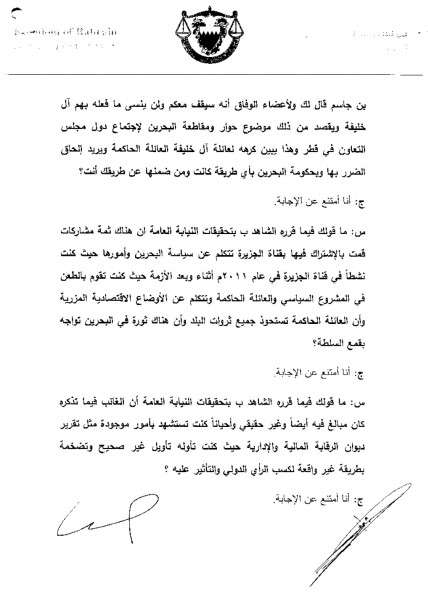 Kingdom of Bahrain
بن جاسم قال لك ولأعضاء الوفاق أنه سيقف معكم ولن ينسى ما فعله بهم آل
خليفة ويقصد من ذلك موضوع حوار ومقاطعة البحرين لإجتماع دول مجلس
التعاون في قطر وهذا يبين كرهه لعائلة آل خليفة العائلة الحاكمة ويريد إلحاق
الضرر بها وبحكومة البحرين بأي طريقة كانت ومن ضمنها عن طريقك أنت؟
ج: أنا أمتنع عن الإجابة.
س: ما قولك فيما قرره الشاهد ب بتحقيقات النيابة العامة ان هناك ثمة مشاركات
قمت بالإشتراك فيها بقناة الجزيرة تتكلم عن سياسة البحرين وأمورها حيث كنت
نشطاً في قناة الجزيرة في عام ٢٠١١م أثناء وبعد الأزمة حيث كنت تقوم بالطعن
في المشروع السياسي والعائلة الحاكمة وتتكلم عن الأوضاع الاقتصادية المزرية
وأن العائلة الحاكمة تستحوذ جميع ثروات البلد وأن هناك ثورة في البحرين تواجه
بقمع السلطة؟
ج: أنا أمتنع عن الإجابة.
س: ما قولك فيما قرره الشاهد ب بتحقيقات النيابة العامة أن الغالب فيما تذكره
كان مبالغ فيه أيضاً وغير حقيقي وأحياناً كنت تستشهد بأمور موجودة مثل تقرير
ديوان الرقابة المالية والإدارية حيث كنت تأوله تأويل غير صحيح وتضخمة
بطريقة غير واقعة لكسب الرأي الدولي والتأثير عليه ؟
ج: أنا أمتنع عن الإجابة.